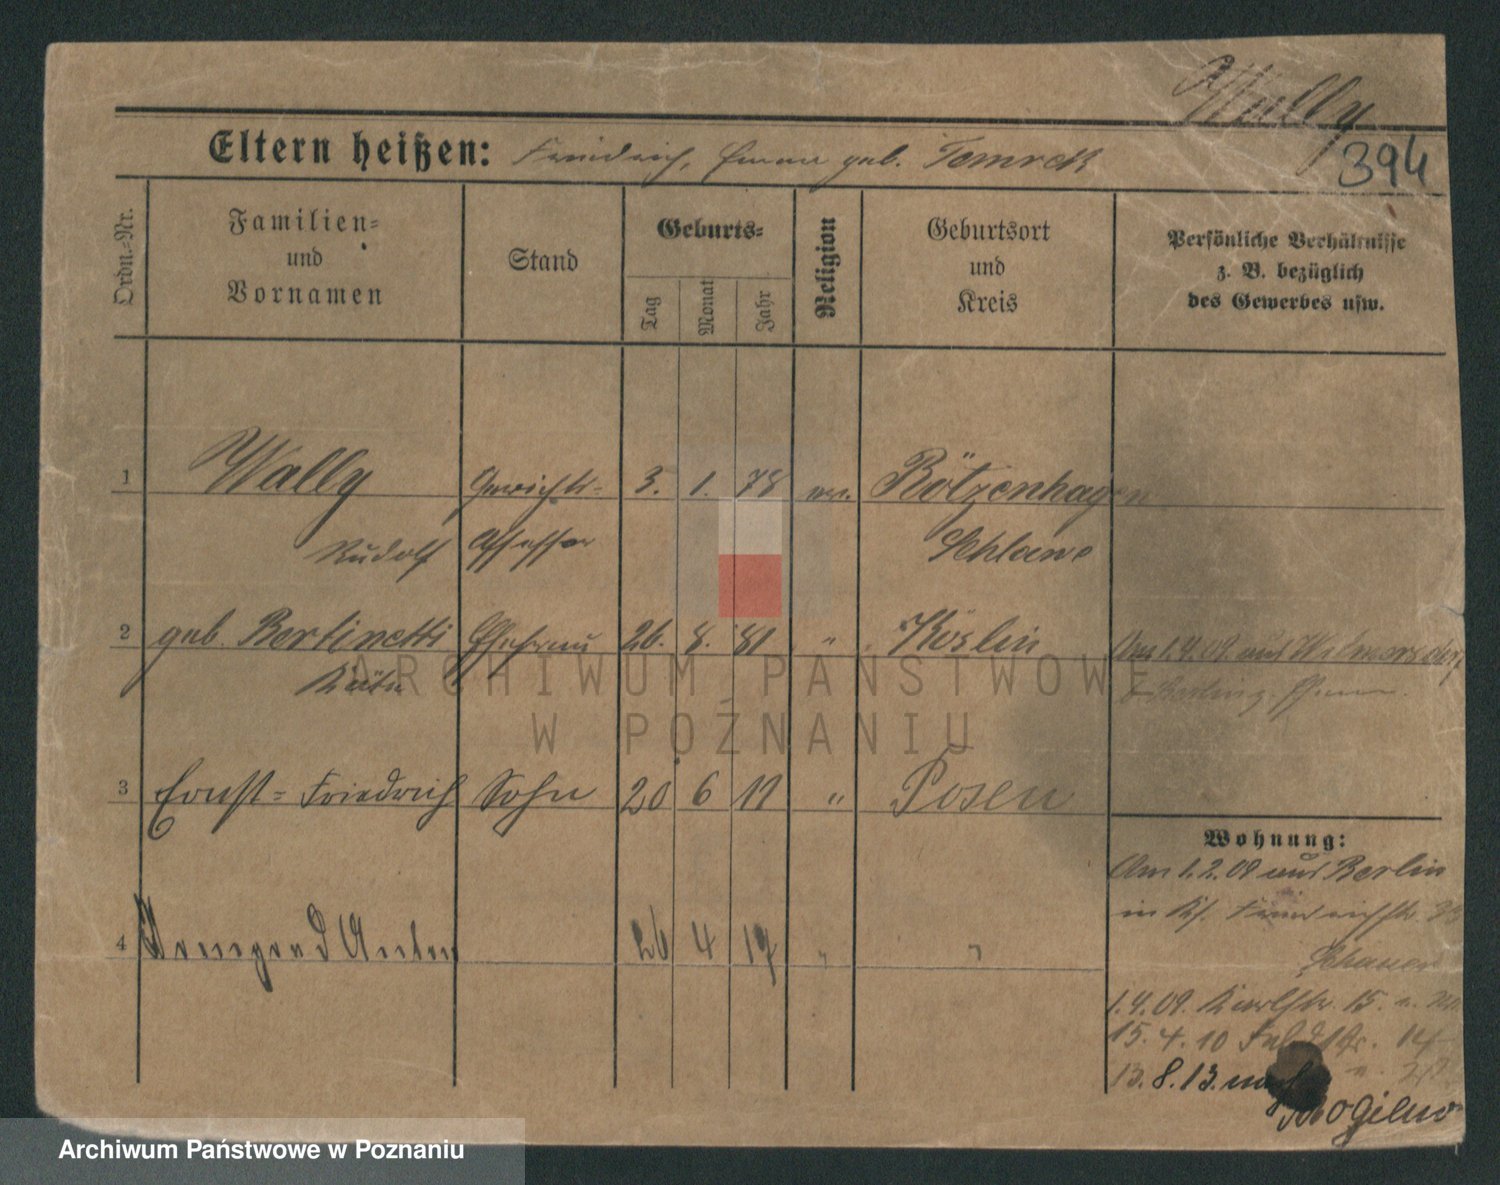 Wally
394
Eltern heißen: Friedrich, Emma geb. Tomreck
Ordn.-Nr.
Familien-
und
Vornamen
Stand
Geburts-
Tag
Monat
Jahr
Religion
Geburtsort
und
Kreis
Persönliche Verhältnisse
z. B. bezüglich
des Gewerbes usw.
1 Wally Gerichts- 3. 1. 78 ev. Bötzenhagen
Rudolf Assessor Schlawe
2 geb. Bertinetti Ehefrau 26. 8. 81 " Köslin Am 1.4.09. aus Wilmersdorf
Käte b Berlin z. Ehem.
3 Ernst-Friedrich Sohn 20 6 11 " Posen
Wohnung:
Am 1.2.09 aus Berlin
in Kl.
4 26 4 17 " "
1.4.09. Karlstr. 15.
15.4.10 14
13.8.13. nach
Mogilno
ARCHIWUM PAŃSTWOWE
W POZNANIU
Archiwum Państwowe w Poznaniu